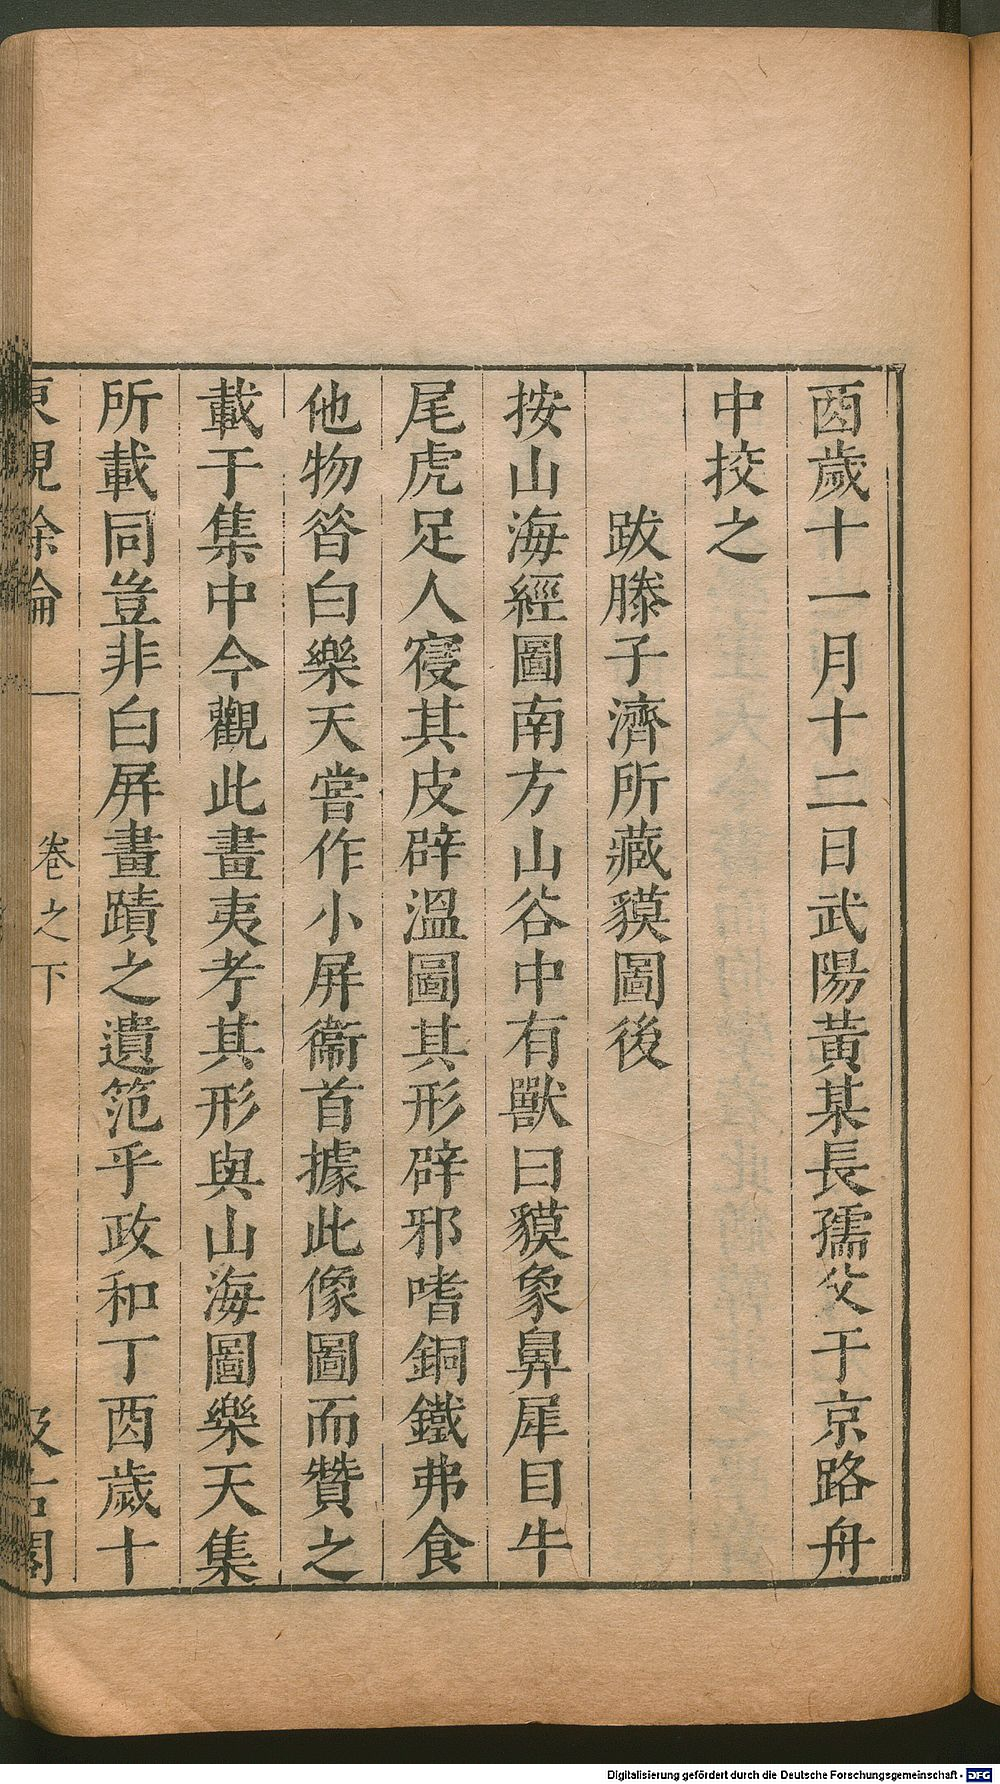 酉歲十一月十二日武陽黃某長孺父于京路舟
中挍之
跋滕子濟所藏貘圖後
按山海經圖南方山谷中有獸曰貘象鼻犀目牛
尾虎足人寢其皮辟溫圖其形辟邪嗜銅鐵弗食
他物昝白樂天嘗作小屏衞首據此像圖而贊之
載于集中今觀此畫夷考其形與山海圖樂天集
所載同豈非白屏畫蹟之遺范乎政和丁酉歲十
東觀餘論
卷之下
汲古閣
Digitalisierung gefördert durch die Deutsche Forschungsgemeinschaft - DFG